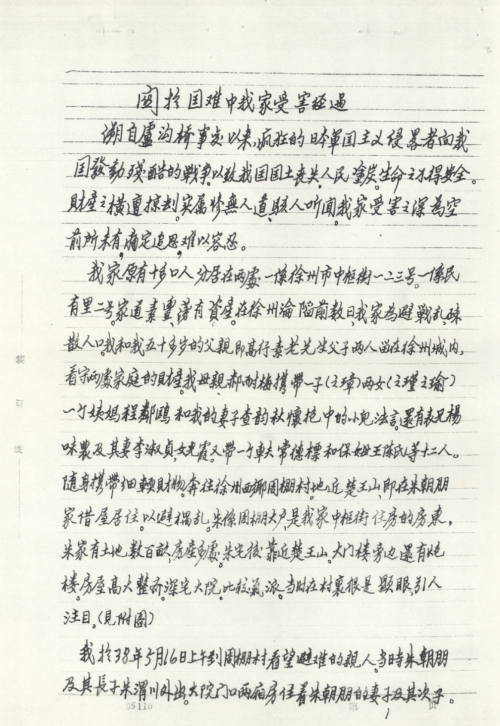 関於国难中我家受害经過
溯自盧沟桥事変以来,疯狂的日本軍国主义侵畧者向我
国發動殘酷的戰争,以致我国国土丧失,人民塗炭。生命之不得安全。
財産之横遭掠刦,实属惨無人道,駭人听闻。我家受害之深为空
前所未有,痛定追思,难以容忍。
我家原有十多口人分居在两處,一係徐州市中枢街一二三号。一係民
有里二号。家道素豊,薄有資産。在徐州淪陷前数日我家为避戰乱,疎
散人口。我和我五十多岁的父親即高行素老先生父子两人留在徐州城内,
看守两處家庭的財産。我母親郝耐梅携带一子(之璋)两女(之瑾之瑜)
一个姨媽程鄰鷗和我的妻子查韵秋懷抱中的小儿法言。还有表兄楊
味農及其妻李淑貞,女光霞。又带一个車夫常德標和保姆王陈氏等十二人。
随身携带细軟財物,奔往徐州西鄉周棚村。地近楚王山,即在朱朝朋
家借屋居住,以避禍乱。朱係周棚大户,是我家中枢街住房的房東,
朱家有土地数百畝,房産多處。朱宅後靠近楚王山。大门楼旁边還有炮
楼。房屋高大整齐,深宅大院。比較氣派。当时在村裏很是顯眼,引人
注目。(見附图)
我於38年5月16日上午到周棚村看望避难的親人。当時朱朝朋
及其長子朱渭川外出。大院门口两廂房住着朱朝朋的妻子及其次子。
1